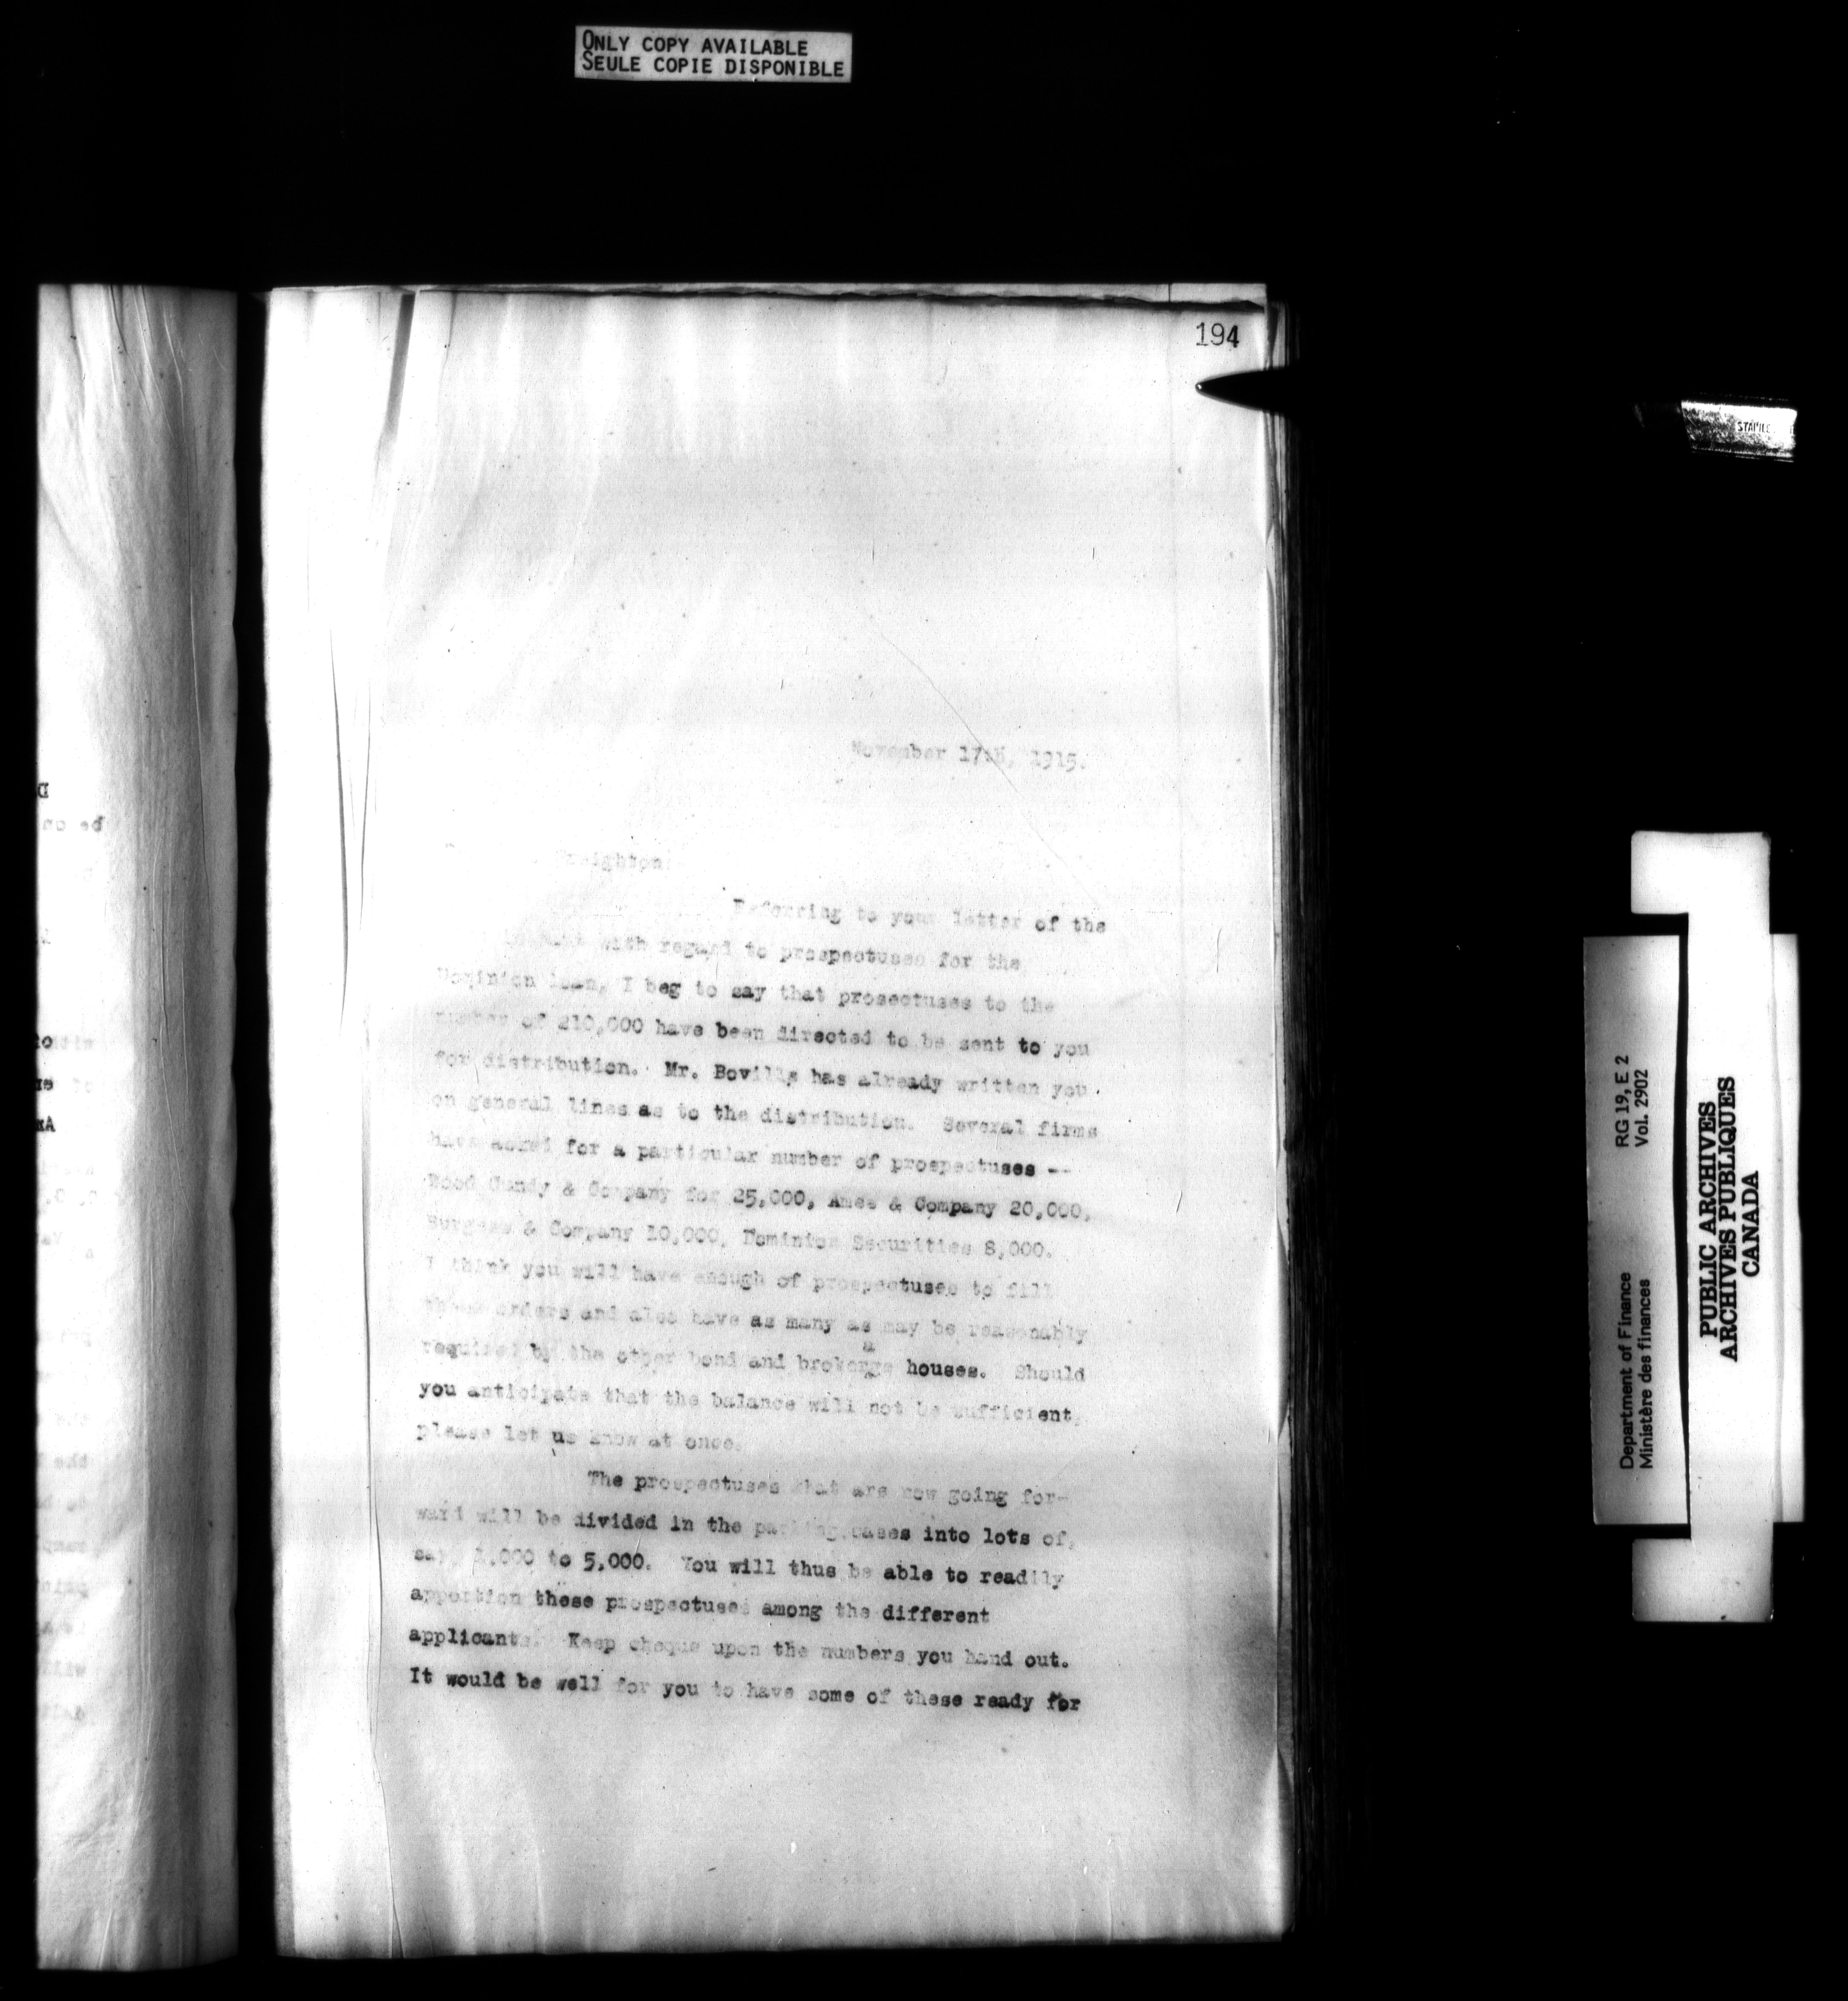 ONLY COPY AVAILABLE
SEULE COPIE DISPONIBLE
194
November 17th, 1915.
Creighton
Referring to your letter of the
with regard to prospectuses for the
Dominion loan, I beg to say that prosectuses to the
number of 210,000 have been directed to be sent to you
for distribution. Mr. Boville has already written you
on general lines as to the distribution. Several firms
have asked for a particular number of prospectuses --
Wood Gundy & Company for 25,000, Ames & Company 20,000,
Burgess & Company 10,000, Dominion Securities 8,000.
I think you will have enough of prospectuses to fill
these orders and also have as many as may be reasonably
required by the other bond and brokerage houses. Should
you anticipate that the balance will not be sufficient,
please let us know at once.
The prospectuses that are now going for-
ward will be divided in the packing cases into lots of,
say, 1,000 to 5,000. You will thus be able to readily
apportion these prospectuses among the different
applicants. Keep cheque upon the numbers you hand out.
It would be well for you to have some of these ready for
Department of Finance RG 19, E 2
Ministère des finances Vol. 2902
PUBLIC ARCHIVES
ARCHIVES PUBLIQUES
CANADA